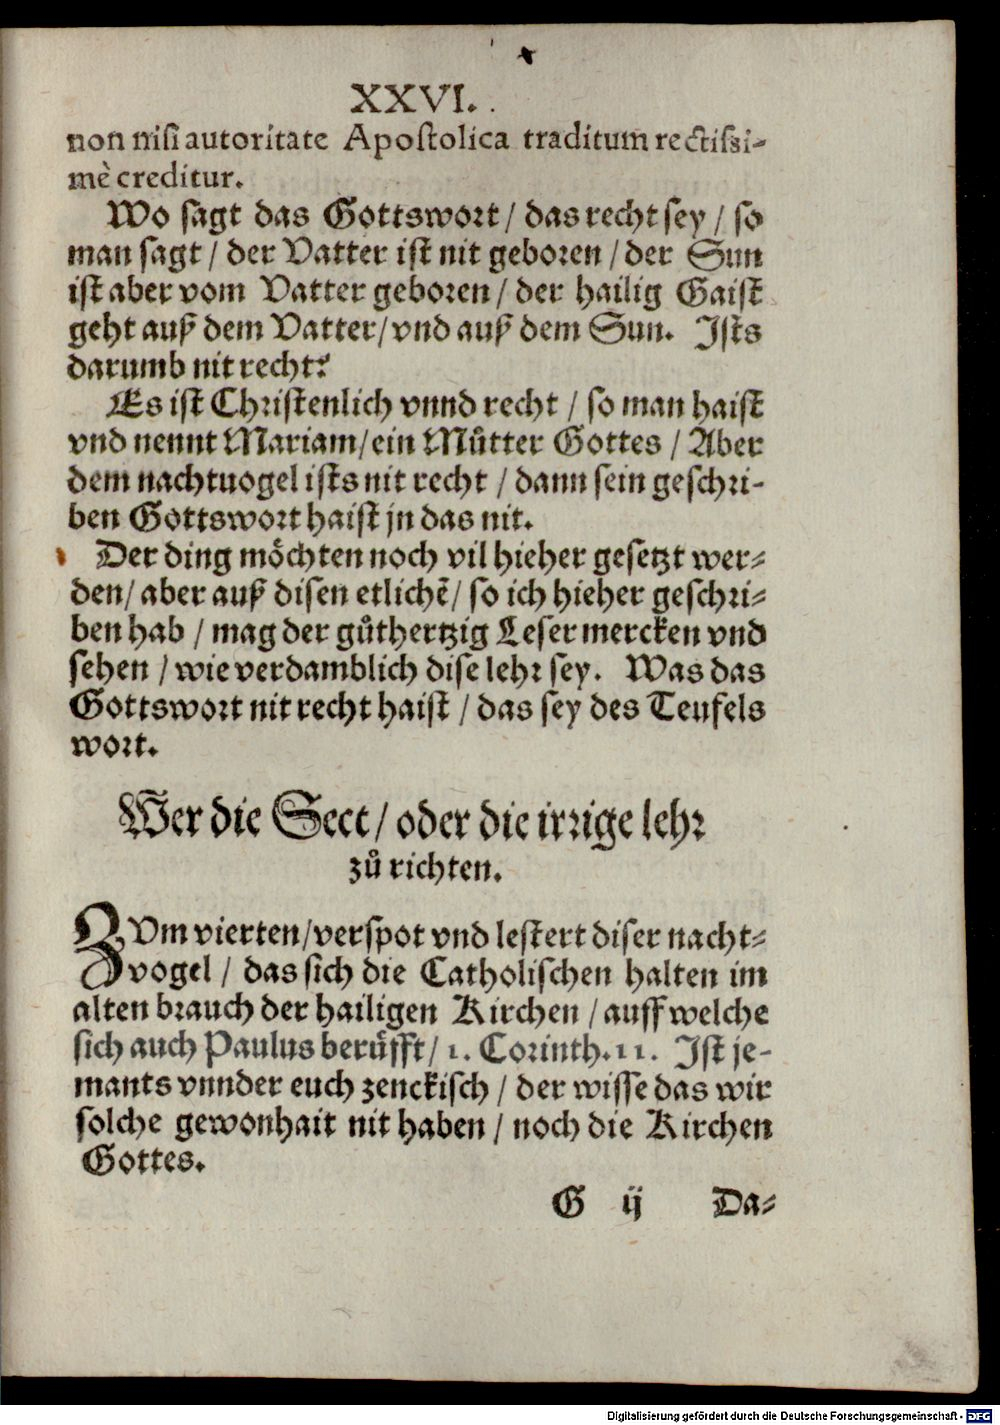 XXVI.
non nisi autoritate Apostolica traditum rectissi-
mè creditur.
Wo sagt das Gottswort / das recht sey / so
man sagt / der Vatter ist nit geboren / der Sun
ist aber vom Vatter geboren / der hailig Gaist
geht auß dem Vatter / vnd auß dem Sun. Ists
darumb nit recht?
Es ist Christenlich vnnd recht / so man haist
vnd nennt Mariam / ein Můtter Gottes / Aber
dem nachtuogel ists nit recht / dann sein geschri-
ben Gottswort haist jn das nit.
Der ding möchten noch vil hieher gesetzt wer-
den / aber auß disen etlichẽ / so ich hieher geschri-
ben hab / mag der gůthertzig Leser mercken vnd
sehen / wie verdamblich dise lehr sey. Was das
Gottswort nit recht haist / das sey des Teufels
wort.
Wer die Sect / oder die irrige lehr
zů richten.
ZVm vierten / verspot vnd lestert diser nacht-
vogel / das sich die Catholischen halten im
alten brauch der hailigen Kirchen / auff welche
sich auch Paulus berůfft / 1. Corinth. 11. Ist je-
mants vnnder euch zenckisch / der wisse das wir
solche gewonhait nit haben / noch die Kirchen
Gottes.
G ij Da-
Digitalisierung gefördert durch die Deutsche Forschungsgemeinschaft - DFG